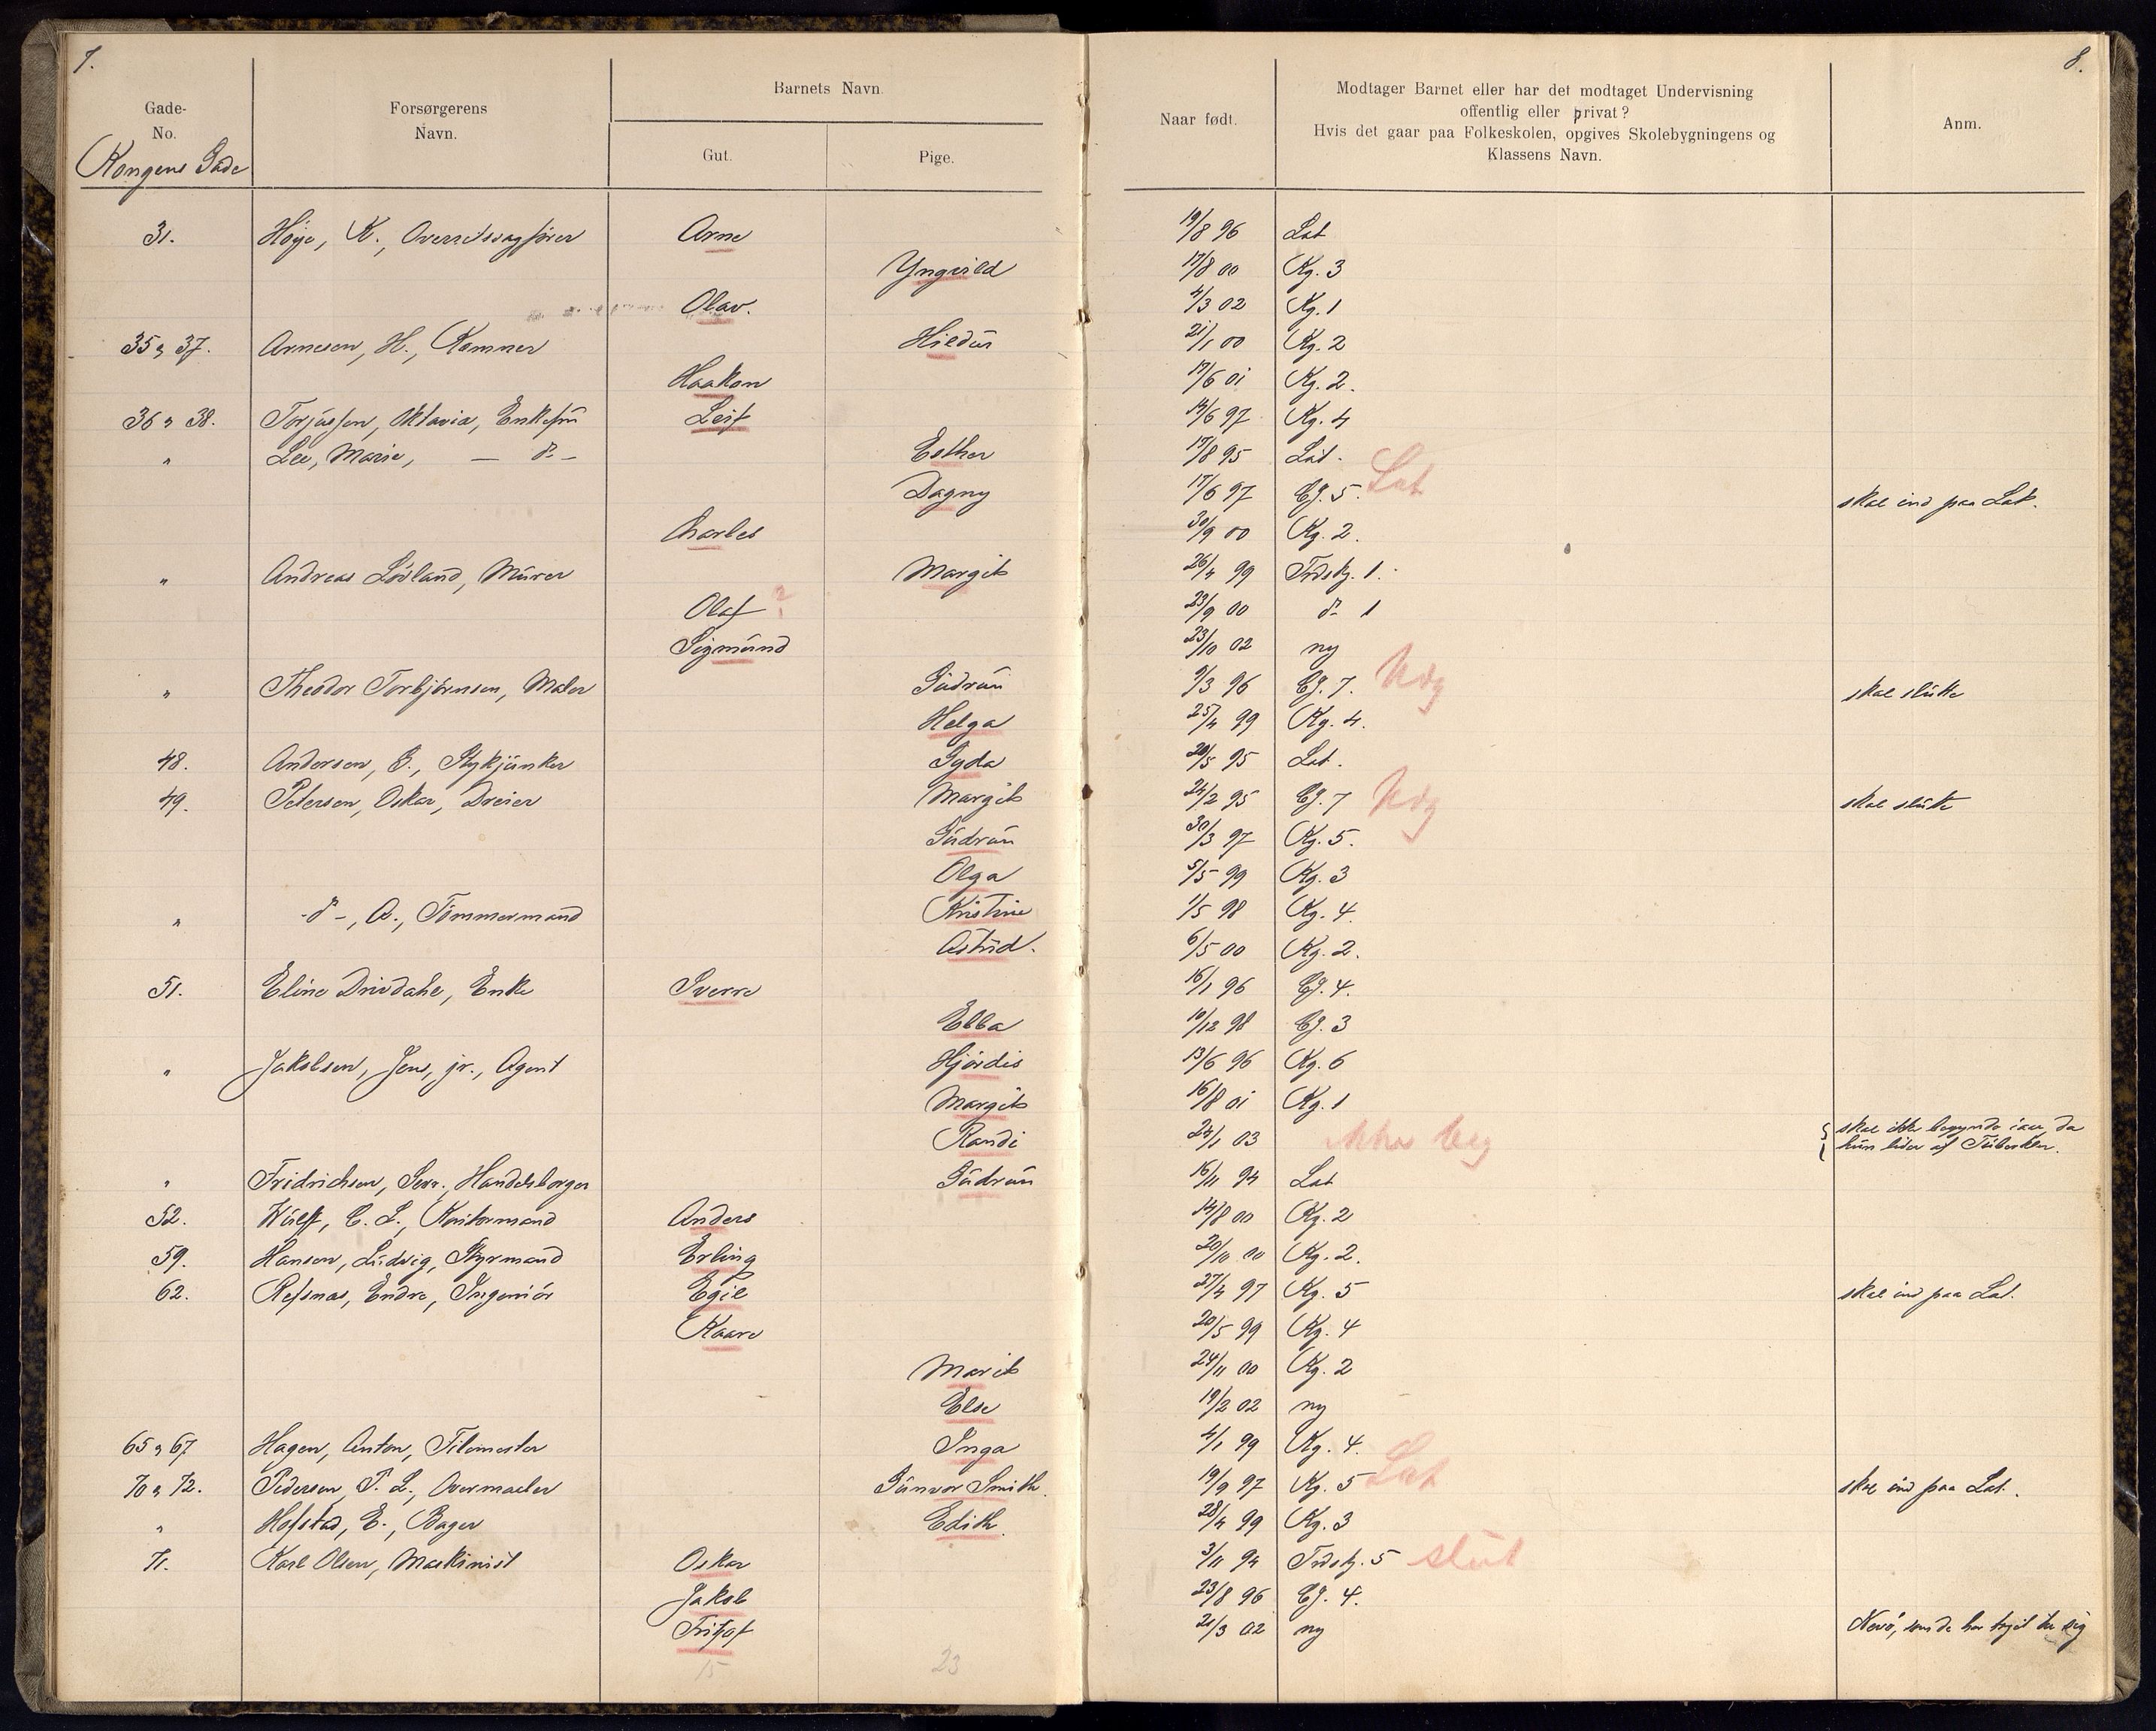 7.
8.
Gade-
No.
Kongens Gade
Forsørgerens
Navn.
Barnets Navn.
Gut.
Pige.
Naar født.
Modtager Barnet eller har det modtaget Undervisning
offentlig eller privat?
Hvis det gaar paa Folkeskolen, opgives Skolebygningens og
Klassens Navn.
Anm.
31. Høye, K., Overretssagfører Arne 19/8 96 Lat
Yngvild 17/8 00 Kg. 3
Olav. 4/3 02 Kg. 1
35 & 37. Arnesen, H., Kemner Hildur 21/1 00 Kg. 2
Haakon 17/6 01 Kg. 2.
36 & 38. Torjussen, Oktavia, Enkefru Leif 14/6 97 Kg. 4
" Lee, Marie, — do — Esther 17/8 95 Lat.
Dagny 17/6 97 EJ. 5. Lat skal ind paa Lat.
Charles 30/9 00 Kg. 2.
" Andreas Lövland, Murer Margit 26/4 99 Trdskj. 1.
Olaf ? 23/9 00 do 1
Sigmund 23/10 02 ny
" Theodor Torbjörnsen, Maler Gudrun 9/3 96 EJ. 7. Udg skal slutte
Helga 25/4 99 Kg. 4.
48. Andersen, G., Stykjunker Gyda 20/5 95 Lat.
49. Petersen, Oskar, Dreier Margit 24/2 95 EJ. 7 Udg skal slutte
Gudrun 30/3 97 Kg. 5.
Olga 5/5 99 Kg. 3
" - do -, A., Tömmermand Kristine 1/5 98 Kg. 4.
Astrid. 6/5 00 Kg. 2.
51. Eline Drivdahl, Enke Sverre 16/1 96 EJ. 4.
Ebba 10/12 98 EJ. 3
" Jakobsen, Jens, jr., Agent Hjördis 13/6 96 Kg. 6
Margit 16/8 01 Kg. 1
Randi 24/1 03 ikke beg skal ikke begynde iaar, da
hun lider af Tuberkler.
" Fridrichsen, Sevr., Handelsborger Gudrun 16/11 94 Lat
52. Wulff, C. L., Kontormand Anders 14/8 00 Kg. 2
59. Hansen, Ludvig, Styrmand Erling 20/10 00 Kg. 2.
62. Refsnæs, Endre, Ingeniör Egil 27/4 97 Kg. 5 skal ind paa Lat.
Kaare 20/5 99 Kg. 4
Marit 24/11 00 Kg. 2
Else 19/2 02 ny
65 & 67 Hagen, Anton, Filemester Inga 4/1 99 Kg. 4.
70 & 72. Pedersen, P. L., Overmaaler Gunvor Smith. 19/9 97 Kg. 5 Lat skal ind paa Lat.
" Hofstad, E., Bager Edith. 28/4 99 Kg. 3
71. Karl Olsen, Maskinist Oskar 3/11 94 Trdskj. 5 slut
Jakob 23/8 96 EJ. 4.
Fritjof 21/3 02 ny Nevö, som de har taget til sig
15 23